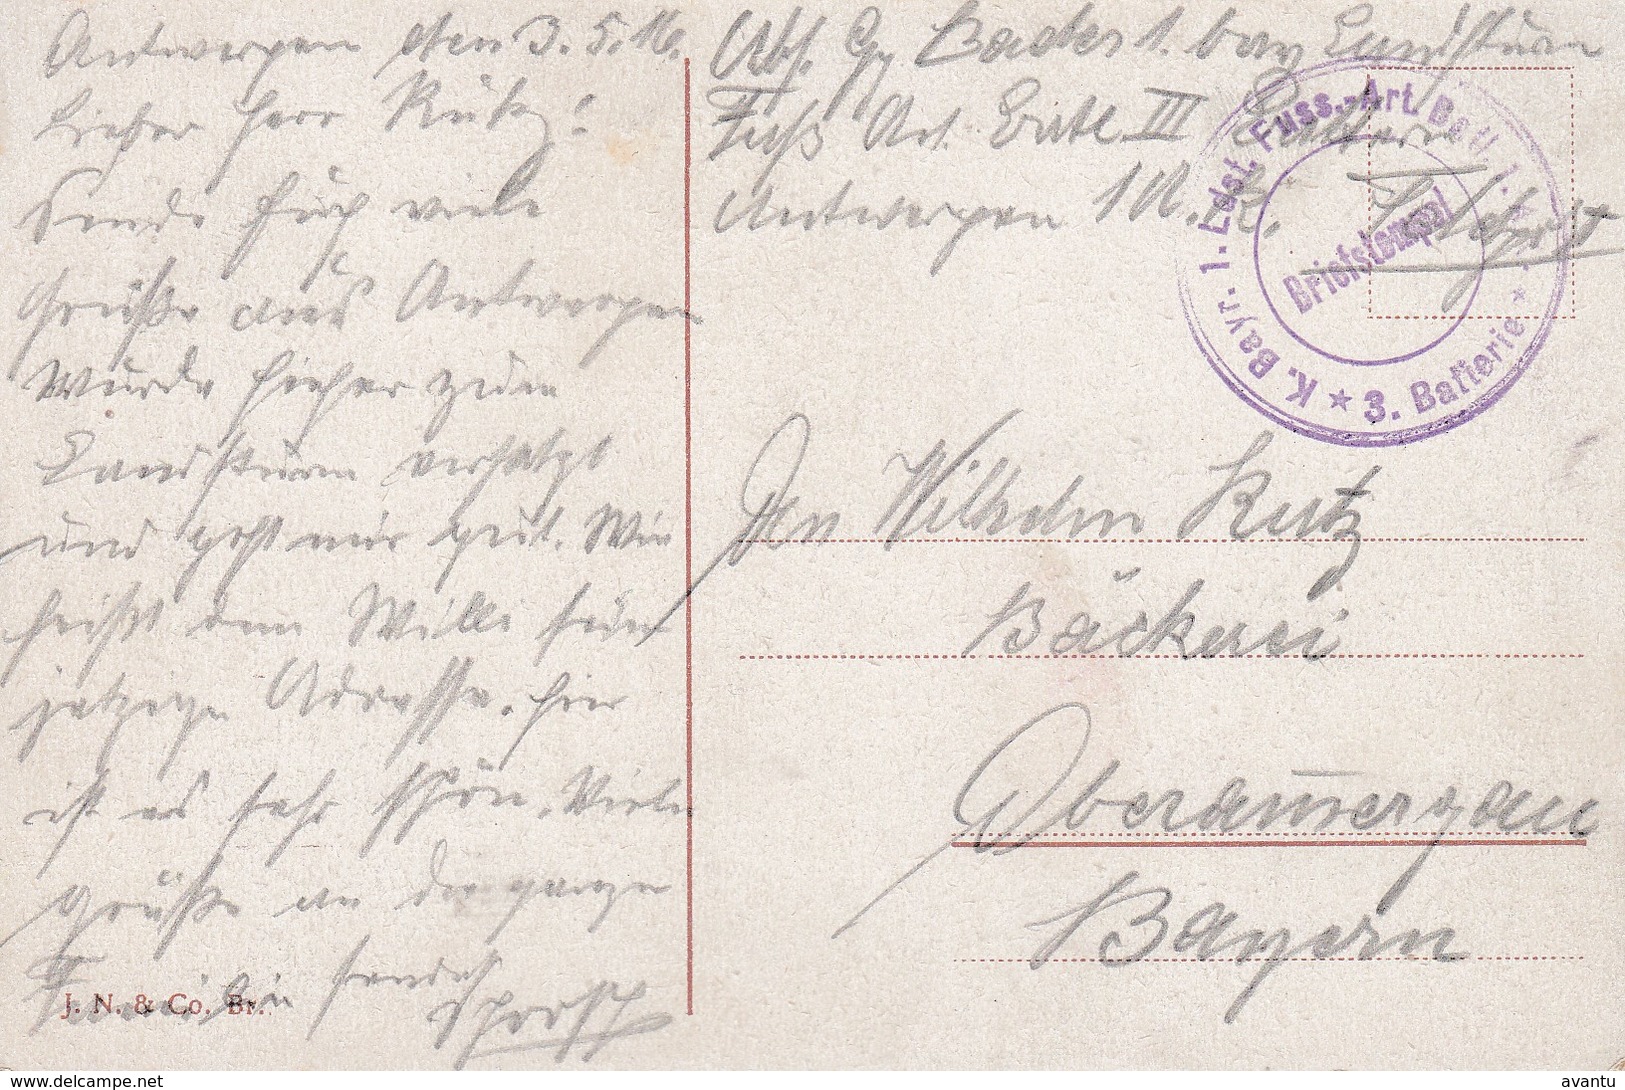 Antwerpen den 3.5.16.
Lieber Herr Rutz!
Sende Euch viele
Grüße aus Antwerpen
Wurde hieher zum
Landsturm versetzt
und geht mir gut. Wie
heißt dem Willi seine
jetzige Adresse. hier
ist es sehr schön. Viele
grüße an die ganze
Familie sendet
J. N. & Co. Br.
Abs. Bader 1. bay Landsturm
Fuß Art. Batl III Batterie
Antwerpen
K. Bayr. 1. Ldst. Fuss.-Art. Batl. 1.
Briefstempel
★ 3. Batterie ★
Wilhelm Rutz
Bäckerei
Oberam̄ergau
Bayern
www.delcampe.net
avantu